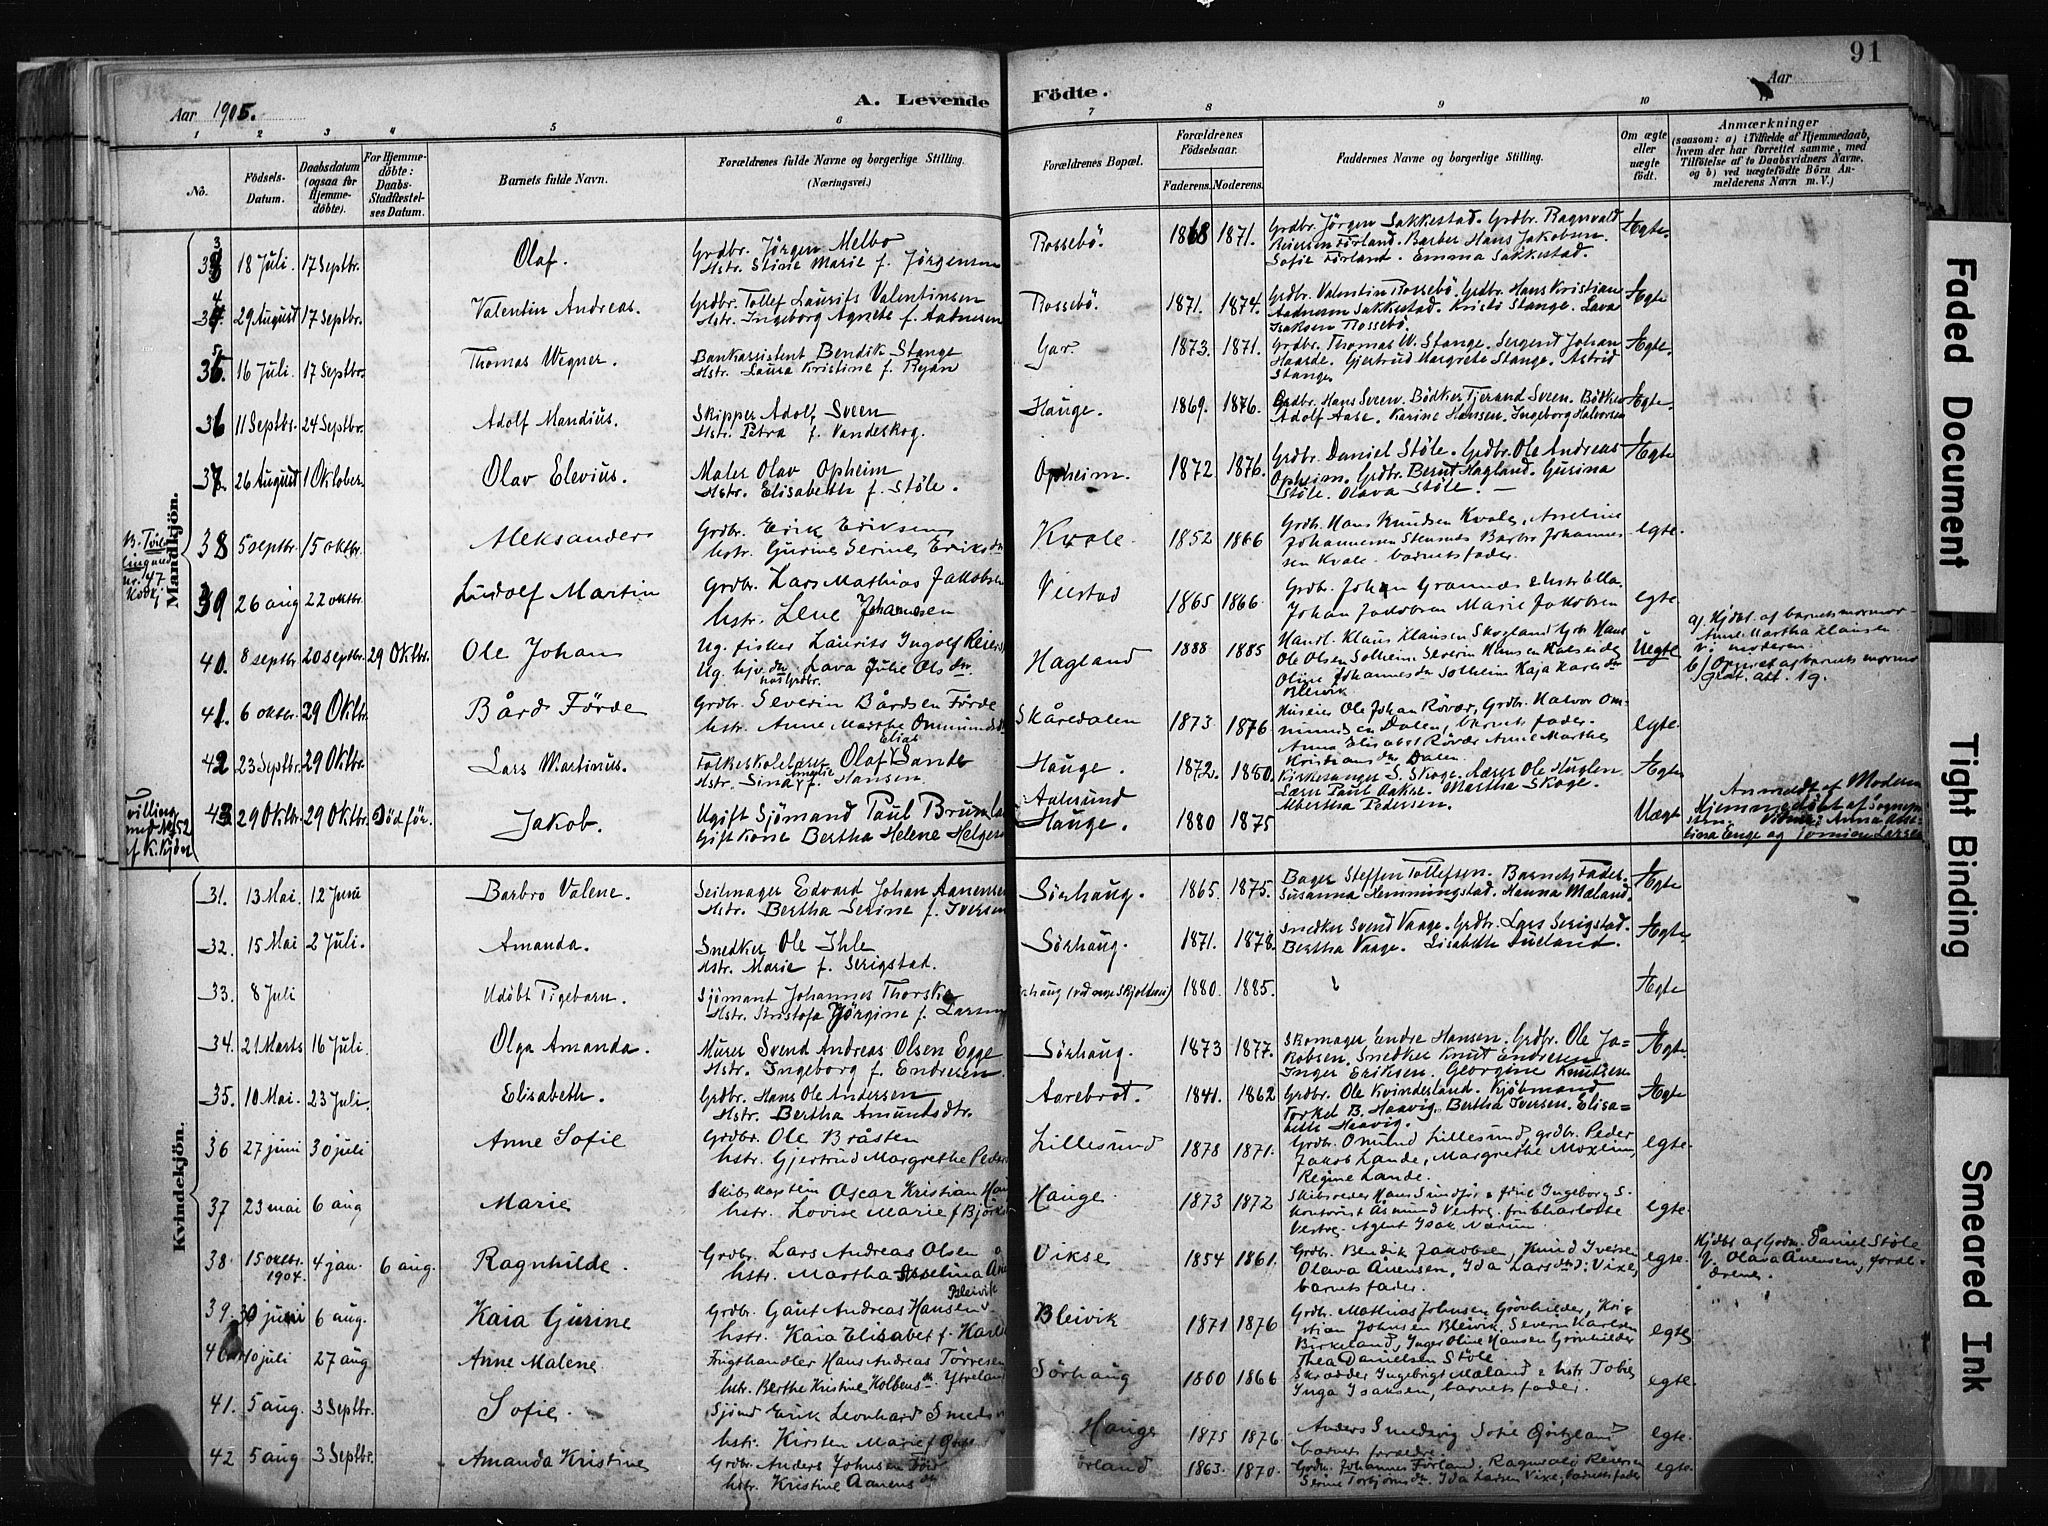 91
Aar 1905.
A. Levende Födte.
Aar
1 2 3 4 5 6 7 8 9 10
No.
Födsels-Datum.
Daabsdatum (ogsaa for Hjemme-döbte).
For Hjemme-döbte: Daabs-Stadfæstel-ses Datum.
Barnets fulde Navn.
Forældrenes fulde Navne og borgerlige Stilling. (Næringsvei.)
Forældrenes Bopæl.
Forældrenes Födselsaar.
Faderens. Moderens.
Faddernes Navne og borgerlige Stilling.
Om ægte eller uægte födt.
Anmærkninger
(saasom: a) i Tilfælde af Hjemmedaab, hvem der har forrettet samme, med Tilföielse af to Daabsvidners Navne. og b) ved uægtefödte Börn Anmelderens Navn m. V.)
Mandkjön.
33 18 Juli. 17 Septbr. Olaf. Grdbr. Jörgen Melbo Rossebö. 1868 1871. Grdbr. Jörgen Sakkestad. Grdbr. Ragnvald Ægte.
Hstr. Stine Marie f. Jörgensen Reiersen Förland. Barber Hans Jakobsen.
Sofie Förland. Emma Sakkestad.
34. 29 August 17 Septbr. Valentin Andreas. Grdbr. Tollef Laurits Valentinsen Rossebö. 1871. 1874. Grdbr. Valentin Rossebö. Grdbr. Hans Kristian Ægte
Hstr. Ingeborg Agnete f. Aadnesen Aadnesen Sakkestad. Kristi Stange. Lava
Isaksen Rossebö.
35. 16 Juli. 17 Septbr. Thomas Wegner. Bankassistent Bendik Stange Gar. 1873. 1871. Grdbr. Thomas W. Stange. Sergent Johan Ægte.
Hstr. Laura Kristine f. Ryan Haarde. Gjertrud Margrete Stange. Astrid
Stange
36 11 Septbr. 24 Septbr. Adolf Mandius. Skipper Adolf Sveen Hauge. 1869. 1876. Grdbr. Hans Sveen. Bödker Tjerand Sveen. Bödker Ægte.
Hstr. Petra f. Vandeskog. Adolf Aase. Karine Hansen. Ingeborg Halvorsen
37. 26 August 1 Oktober. Olav Elevius. Maler Olav Opheim Opheim. 1872 1876. Grdbr. Daniel Stöle. Grdbr. Ole Andreas Ægte
Hstr. Elisabeth f. Stöle. Opheim. Grdbr. Bernt Hagland. Gurina
Stöle. Olava Stöle.
38 5 septbr. 15 oktbr. Aleksander Grdbr. Erik Eriksen Kvale. 1852 1866 Grdb. Hans Knudsen Kvale, Asseline egte.
hstr. Gurine Serine Eriksdtr Johannesen Barbro Johannes
sen Kvale. barnets fader.
39 26 aug 22 oktbr. Ludolf Martin Grdbr. Lars Mathias Jakobsen 1865 1866. Grdb. Johan Grannes & hstr Ella. egte.
hstr. Lene Johannesen Johan Jakobsen Marie Jakobsen
40. 8 septbr 20 septbr 29 Oktbr. Ole Johan Ug. fisker Laurits Ingolf Reiers Hagland 1888 1885 Handl. Klaus Klausen Skogland Grb Hans Uegte
Ug. hjv. dtr Lava Julie Olsdtr. hos Grdbr. Ole Olsen Solheim Severin Hansen
Oline Johannesdtr Solheim Kaja Karlsdtr
Bleivik
a) Hjdbt. af barnets mormor Anne Martha Klausen
41. 6 oktbr. 29 Oktbr. Bård Förde Grdbr. Severin Bårdsen Förde Skåredalen 1873. 1876 Huseier Ole Johan Rövær, Grdbr. Halvor Om- egte.
hstr. Anne Marthe Ommundsdtr mundsen Dalen, barnets fader.
Anna Elisabet Rövær Anne Marthe
Kristiansdtr Dalen
42 23 Septbr. 29 Oktbr. Lars Martinius. Folkeskolelærer Olaf Elias Sande Hauge. 1872. 1880. Kirkesanger S. Skoge. Lærer Ole Huglen. Ægte
Hstr. Sina Amalie f. Hansen. Lærer Paul Aakse. Martha Skoge.
Albertha Pedersen.
43. 29 Oktbr. 29 Oktbr. Död för. Jakob. Ugift Sjömand Paul Brunla Aalesund 1880 1875 Uægt
Gift Kone Bertha Helene Helgesen Hauge.
Anmeldt af Moderen
Hjemmedöbt af Sogneprsten.
Tvilling med No 52 af K. Kjön
Kvindekjön.
31. 13 Mai. 12 Juni Barbro Valene. Seilmager Edvard Johan Aanensen Sörhaug. 1865. 1875. Bager Steffen Tollefsen. Barnets Fader. Ægte
Hstr. Bertha Serine f. Iversen Susanna Hemmingstad. Hanna Mæland.
32. 15 Mai 2 Juli. Amanda. Snedker Ole Ihle Sörhaug. 1871. 1878. Snedker Svend Vaage. Grdbr. Lars Serigstad. Ægte
Hstr. Marie f. Serigstad. Bertha Vaage. Lisabeth Lueland.
33. 8 Juli Udöbt Pigebarn. Sjömand Johannes Thorske Sörhaug 1880. 1885. Ægte
Hstr. Kristofa Jörgine f. Larsen
34. 21 Marts 16 Juli. Olga Amanda. Murer Svend Andreas Olsen Egge Sörhaug. 1873 1877. Skomager Endre Hansen. Grdbr. Ole Ja- Ægte.
Hstr. Ingeborg f. Endresen. kobsen. Snedker Knut Endresen
Inger Eriksen. Georgine Knutsen
35. 10 Mai. 23 Juli. Elisabeth. Grdbr. Hans Ole Andersen Aarebrot. 1841. 1862 Grdbr. Ole Kvinderland. Kjöbmand Ægte
Hstr. Bertha Amundsdtr. Torkel B. Haavig. Bertha Iversen. Elisa-
beth Haavig.
36 27 juni 30 juli Anne Sofie Grdbr. Ole Bråsten Lillesund 1878 1871. Grdbr. Omund Lillesund, grdbr. Peder egte.
hstr. Gjertrud Margrethe Peders Jakob Lande, Margrethe
Regine Lande.
37 23 mai 6 aug Marie Skibskaptein Oscar Kristian Hauge. 1873 1872 Skibsreder Hans Sundför & frk Ingeborg S. egte.
hstr. Lovise Marie f Kontorist Asmund Vestre. fru Charlotte
Vestre. Agent Isak Nærum.
38. 15 oktbr. 1904. 4 jan. 6 aug. Ragnhilde. Grdbr. Lars Andreas Olsen Vikse 1854 1861. Grdbr. Bendik Jakobsen, Knud Iversen egte.
hstr. Martha Asselina Olava Anensen, Ida Larsdtr: Vixe,
barnets fader.
Hjdbt af Grdm. Daniel Stöle
39. 30 juni 6 aug. Kaia Gurine Grdbr. Gaut Andreas Hansen Bleivik Bleivik 1871 1876 Grdbr. Mathias Johnsen Grönhilder, Kri- egte
hstr. Kaia Elisabet f. stjan Johnsen Bleivik. Severin Karlsen
Birkeland, Inger Oline Hansen Grönhilder
Thea Danielsen Stöle
40 10 juli 27 aug Anne Malene Frugthandler Hans Andreas Törresen Sörhaug 1860 1866 Skrædder Ingebrigt Mæland & hstr Tobie egte.
hstr. Berthe Kristine Kolbensdtr Ytreland Inga Isaksen, barnets fader.
41. 5 aug. 3 Septbr. Sofie. Sjömd Erik Leonhard Smedsv Hauge 1875 1876. Anders Smedsvig Sofie egte.
hstr. Kirsten Marie f barnets forældre.
42 5 aug 3 Septbr. Amanda Kristine Grdbr. Anders Johnsen Förl Förland 1863. 1870. Grdb. Johannes Förland, Ragnvald Reiersen egte.
hstr. Kristine Aanensdtr Serine Torbjörnsdtr. Ida Larsen Vixe, barnets fader
Faded Document
Tight Binding
Smeared Ink